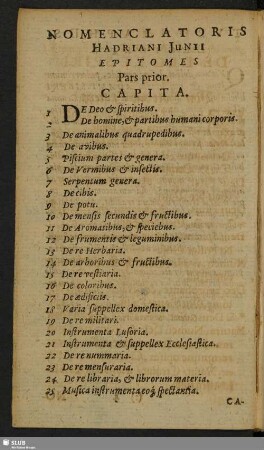 NOMENCLATORIS
HADRIANI JUNII
EPITOMES
Pars prior.
CAPITA.
1 DE Deo & spiritibus.
2 De homine, & partibus humani corporis.
3 De animalibus quadrupedibus.
4 De avibus.
5 Piscium partes & genera.
6 De Vermibus & insectis.
7 Serpentum genera.
8 De cibis.
9 De potu.
10 De mensis secundis & fructibus.
11 De Aromatibus, & speciebus.
12 De frumentis & leguminibus.
13 De re Herbaria.
14 De arboribus & fructibus.
15 De re vestiaria.
16 De coloribus.
17 De ædificiis.
18 Varia suppellex domestica.
19 De re militari.
20 Instrumenta Lusoria.
21 Instrumenta & suppellex Ecclesiastica.
22 De re nummaria.
23 De re mensuraria.
24 De re libraria, & librorum materia.
25 Musica instrumenta eoq; spectantia.
CA-
SLUB